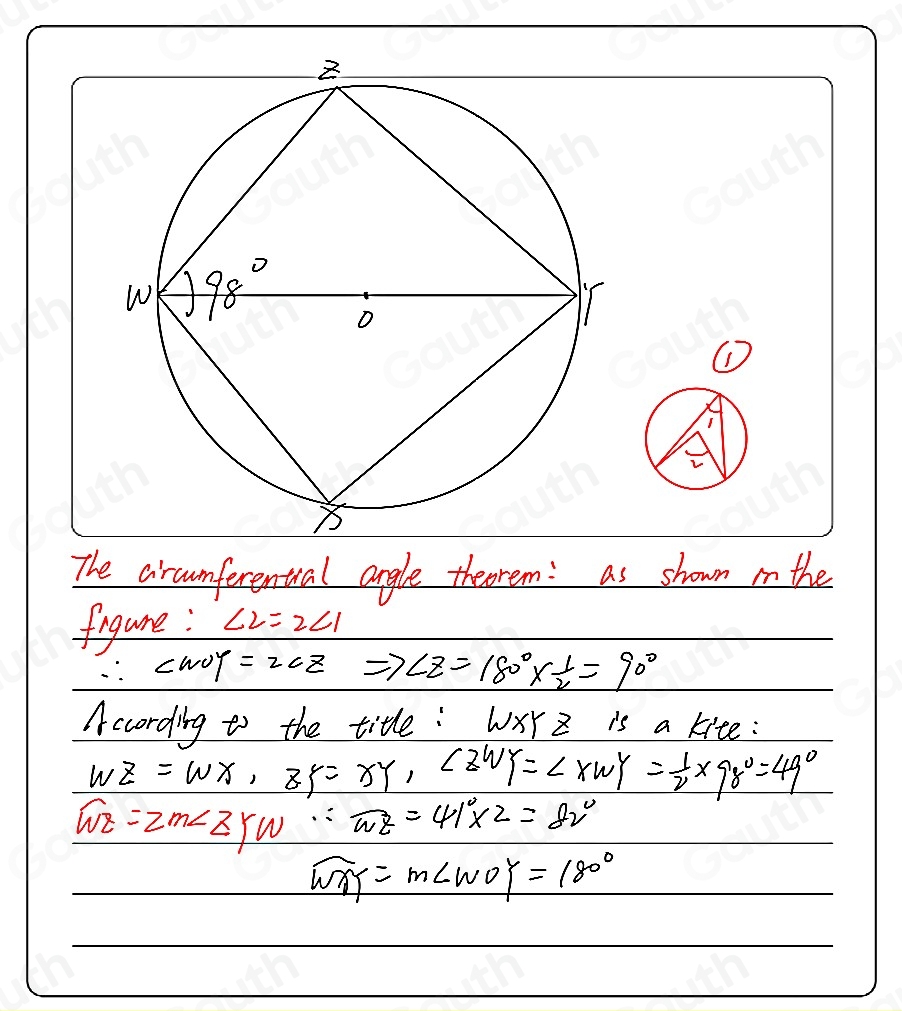 Z
W
98°
O
Y
X
①
1
2
The circumferential angle theorem: as shown in the
figure: ∠2=2∠1
∴ ∠WOY=2∠Z ⇒∠Z=180°×1/2=90°
According to the title: WXYZ is a kite:
WZ=WX, ZY=XY, ∠ZWY=∠XWY=1/2×98°=49°
⌒WZ=2m∠ZYW ∴ ⌒WZ=41°×2=82°
⌒WXY=m∠WOY=180°
Gauth